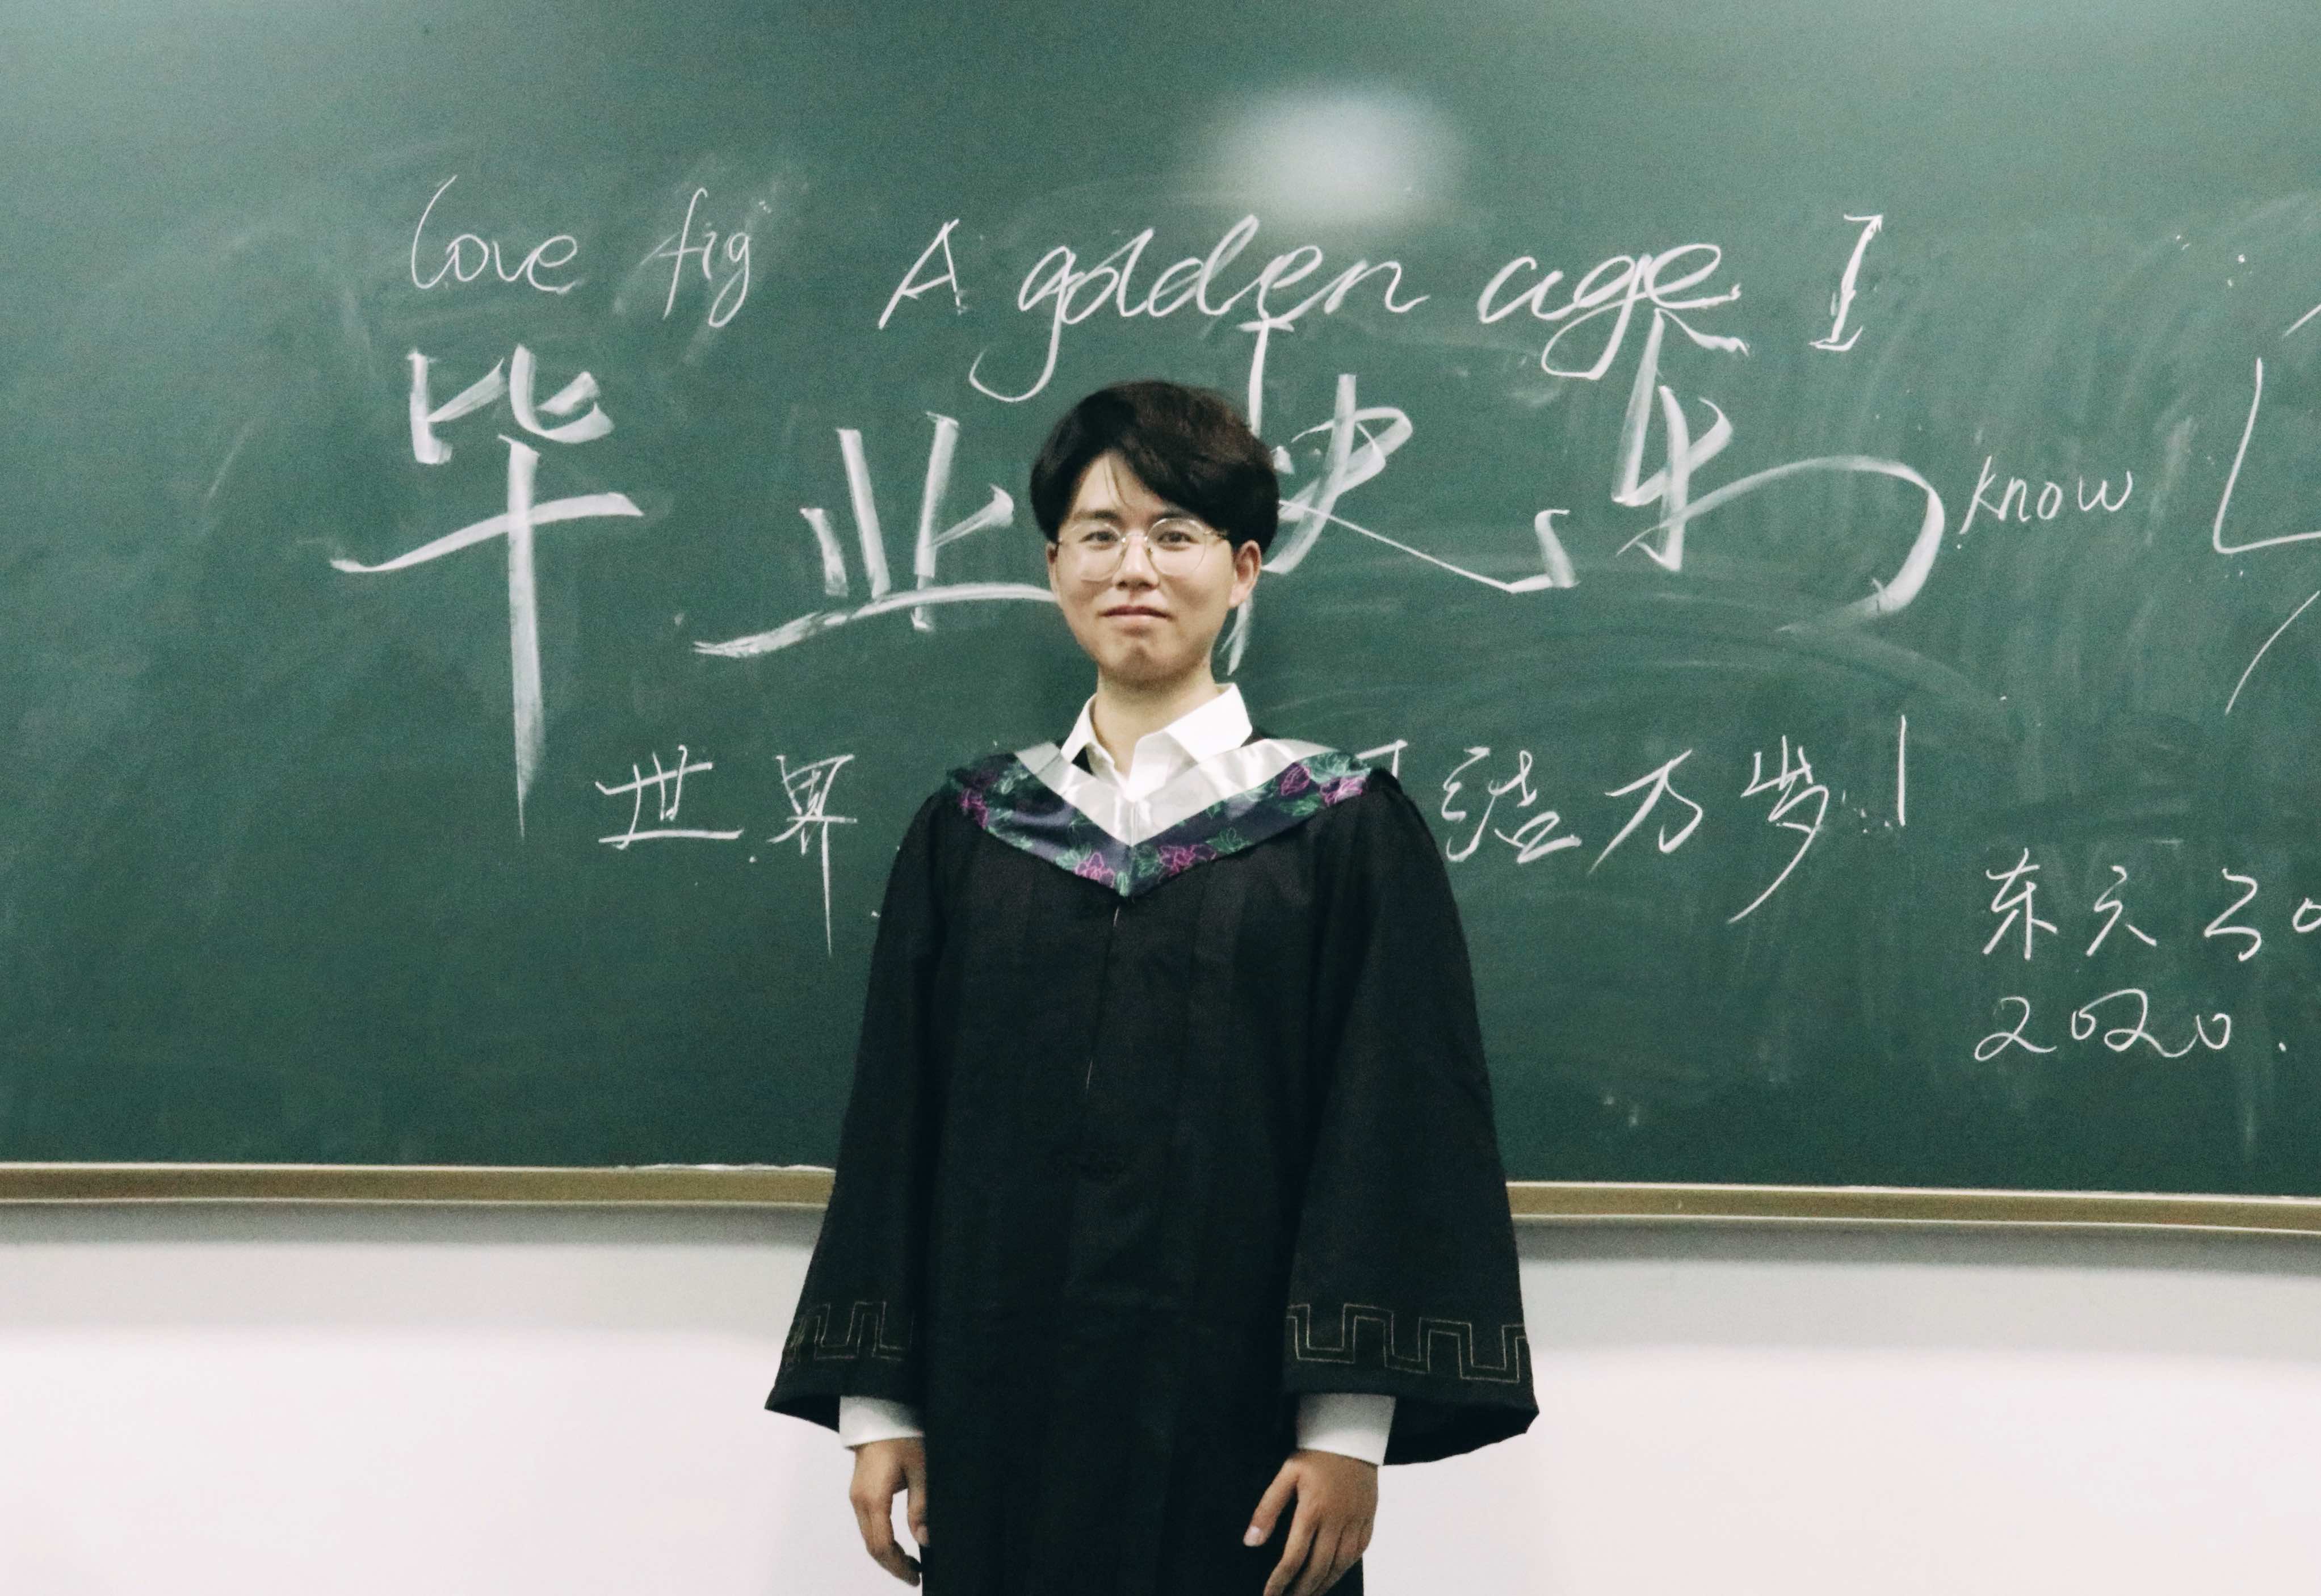 love fig A golden age I
毕业快乐
know
世界
结万岁!
东六
2020.